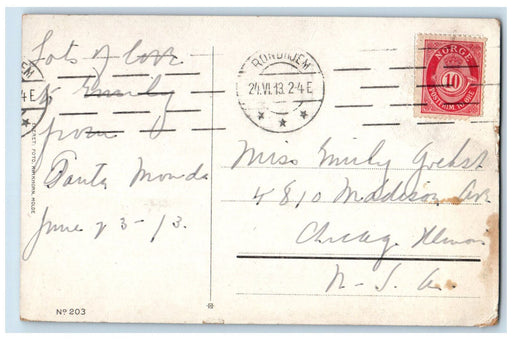 Lots of love
to Emily
from
Tante Monda
June 23-13.
Nº 203
TRONDHJEM
24.VI.13.2-4E
NORGE
10
Miss Emily
4810 Madison Av.
Chicago Illinois
U. S. A.